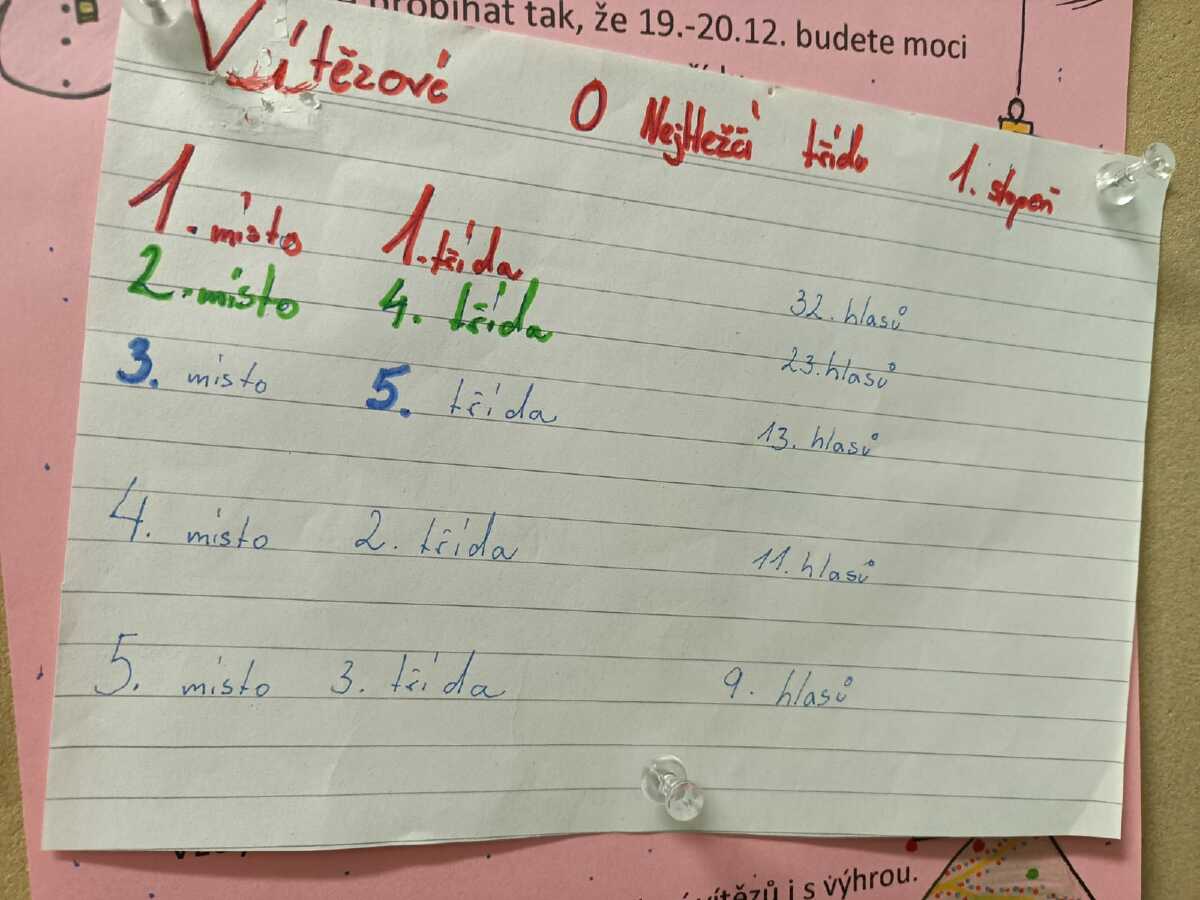 probíhat tak, že 19.-20.12. budete moci
Vítězové O Nejhežčí třídu 1. stupeň
1. místo 1. třída 32. hlasů
2. místo 4. třída 23. hlasů
3. místo 5. třída 13. hlasů
4. místo 2. třída 11. hlasů
5. místo 3. třída 9. hlasů
vítězů i s výhrou.